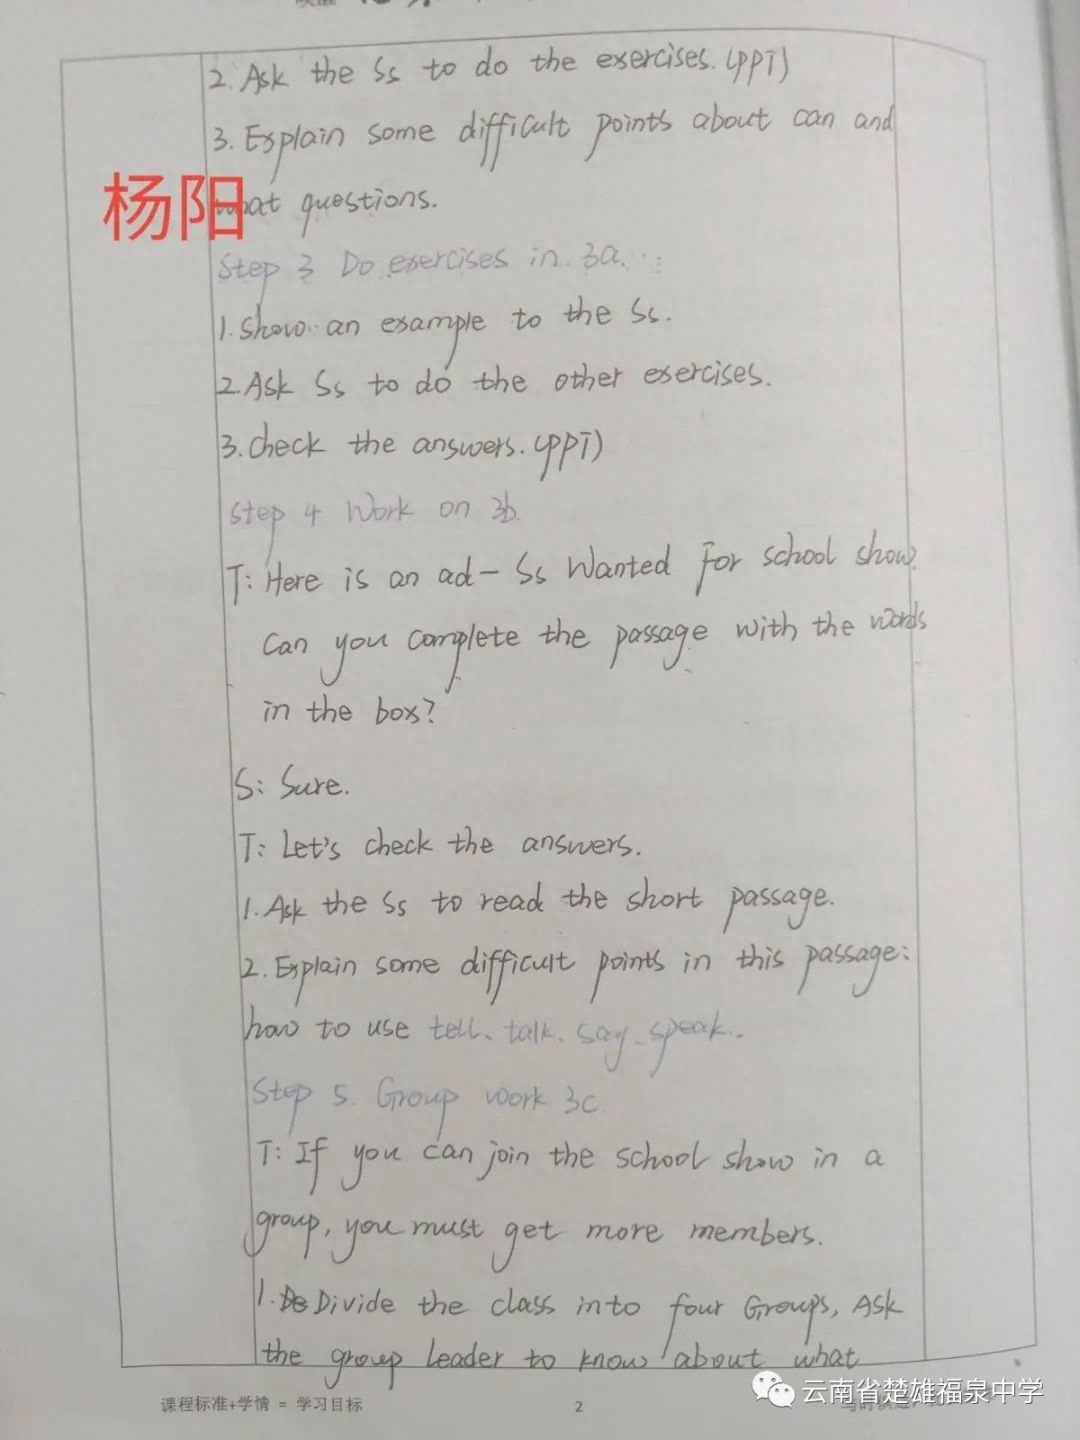 2. Ask the Ss to do the exercises. (PPT)
3. Explain some difficult points about can and
what questions.
杨阳
Step 3 Do exercises in 3a.
1. Show an example to the Ss.
2. Ask Ss to do the other exercises.
3. Check the answers. (PPT)
Step 4 Work on 3b.
T: Here is an ad — Ss Wanted For school show.
Can you complete the passage with the words
in the box?
S: Sure.
T: Let's check the answers.
1. Ask the Ss to read the short passage.
2. Explain some difficult points in this passage:
how to use tell、talk、say、speak.
Step 5. Group work 3c.
T: If you can join the school show in a
group, you must get more members.
1. Divide the class into four Groups, Ask
the group leader to know about what
课程标准+学情 = 学习目标
2
云南省楚雄福泉中学